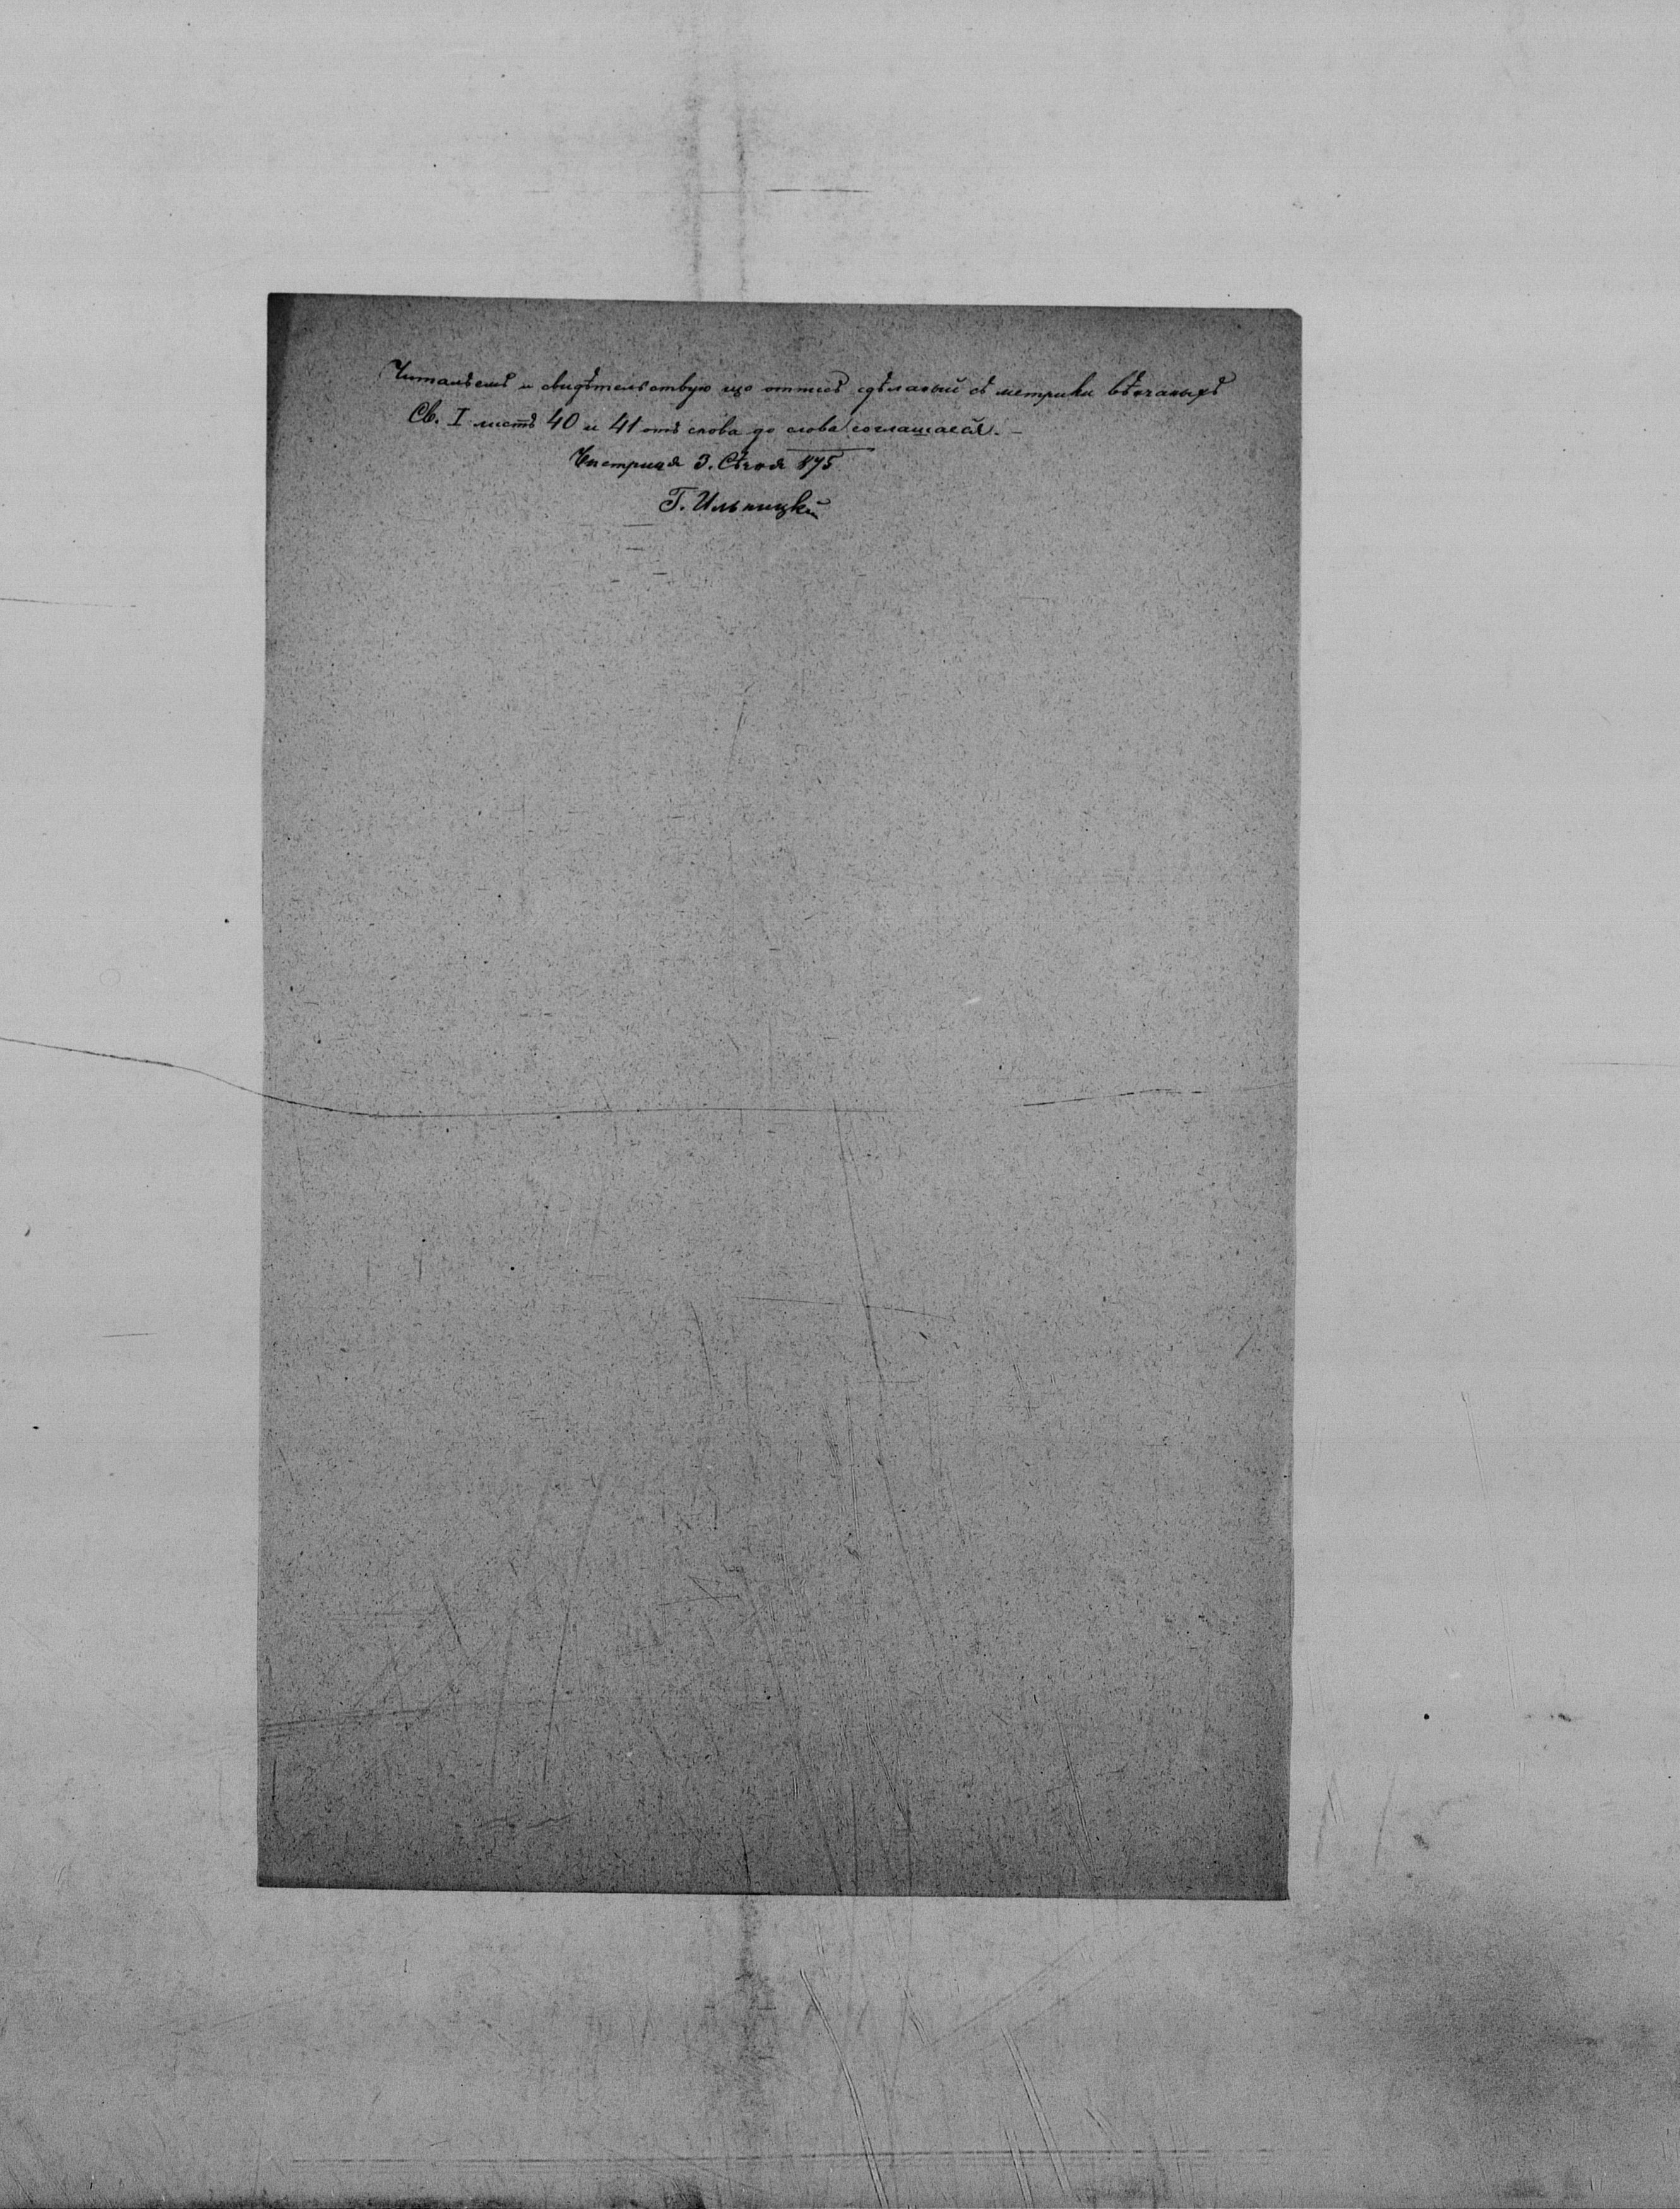 Читалъ емъ и свидѣтельствую що отписъ сдѣланый съ метрики вѣнчаныхъ
Св. I листъ 40 и 41 отъ слова до слова соглашаеся. —
3. Сѣчня 875
Г. Ильницкій